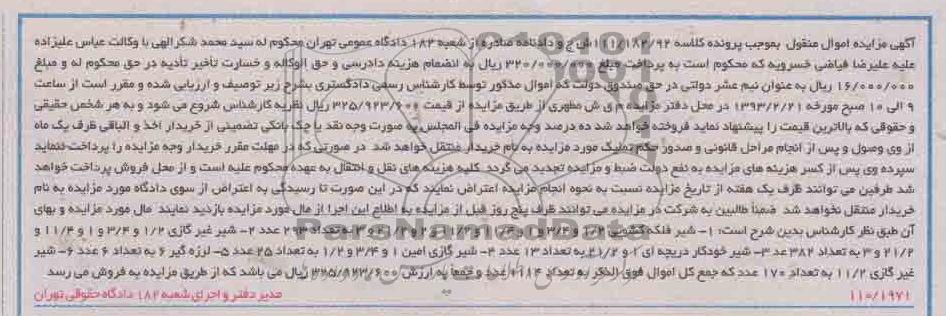 آگهی مزایده اموال منقول بموجب پرونده کلاسه ۱۱۱/۱۸۲/۹۲ ش ج و دادنامه صادره از شعبه ۱۸۲ دادگاه عمومی تهران محکوم له سید محمد شکرالهی با وکالت عباس علیزاده
علیه علیرضا فیاضی خسرویه که محکوم است به پرداخت مبلغ ۳۲۰/۰۰۰/۰۰۰ ریال به انضمام هزینه دادرسی و حق الوکاله و خسارت تأخیر تأدیه در حق محکوم له و مبلغ
۱۶/۰۰۰/۰۰۰ ریال به عنوان نیم عشر دولتی در حق صندوق دولت که اموال مذکور توسط کارشناس رسمی دادگستری بشرح زیر توصیف و ارزیابی شده و مقرر است از ساعت
۹ الی ۱۰ صبح مورخه ۱۳۹۳/۲/۲۱ در محل دفتر مزایده م ق ش مطهری از طریق مزایده از قیمت ۳۲۵/۹۲۳/۶۰۰ ریال نظریه کارشناس شروع می شود و به هر شخص حقیقی
و حقوقی که بالاترین قیمت را پیشنهاد نماید فروخته خواهد شد ده درصد وجه مزایده فی المجلس به صورت وجه نقد یا چک بانکی تضمینی از خریدار اخذ و الباقی ظرف یک ماه
از وی وصول و پس از انجام مراحل قانونی و صدور حکم تملیک مورد مزایده به نام خریدار منتقل خواهد شد در صورتی که در مهلت مقرر خریدار وجه مزایده را پرداخت ننماید
سپرده وی پس از کسر هزینه های مزایده به نفع دولت ضبط و مزایده تجدید می گردد. کلیه هزینه های نقل و انتقال به عهده محکوم علیه است و از محل فروش پرداخت خواهد
شد طرفین می توانند ظرف یک هفته از تاریخ مزایده نسبت به نحوه انجام مزایده اعتراض نمایند که در این صورت تا رسیدگی به اعتراض از سوی دادگاه مورد مزایده به نام
خریدار منتقل نخواهد شد ضمناً طالبین به شرکت در مزایده می توانند ظرف پنج روز قبل از مزایده به اطلاع این اجرا از مال مورد مزایده بازدید نمایند مال مورد مزایده و بهای
آن طبق نظر کارشناس بدین شرح است: ۱- شیر فلکه کشویی ۱/۲ و ۳/۴ و ۱ و ۱/۴ ۱ و ۱/۲ ۱ و ۲ به تعداد ۲۹۳ عدد ۲- شیر غیر گازی ۱/۲ و ۳/۴ و ۱ و ۱۱/۴ و
۲۱/۲ و ۳ به تعداد ۳۸۲ عد ۳- شیر خودکار دریچه ای ۱ و ۲۱/۲ به تعداد ۱۳ عدد ۴- شیر گازی امین ۱ و ۳/۴ و ۱/۲ به تعداد ۲۵ عدد ۵- لرزه گیر ۶ به تعداد ۶ عدد ۶- شیر
غیر گازی ۱۱/۲ به تعداد ۱۷۰ عدد که جمع کل اموال فوق الذکر به تعداد عدد و جمعا به ارزش ۳۲۵/۹۲۳/۶۰۰ ریال می باشد که از طریق مزایده به فروش می رسد
۱۱۰/۱۹۷۱ مدیر دفتر و اجرای شعبه ۱۸۲ دادگاه حقوقی تهران
ParsNamadData